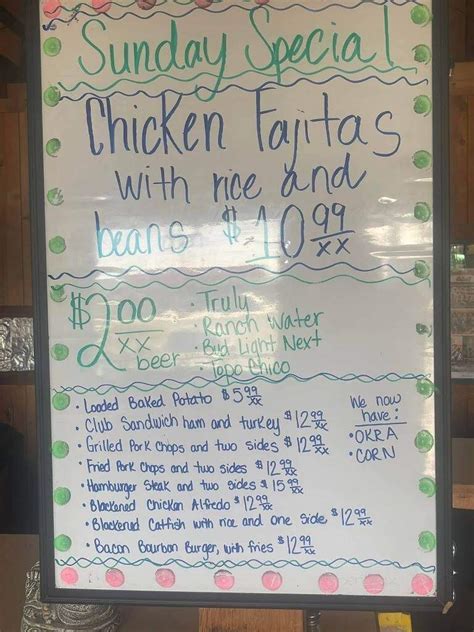 Sunday Special
Chicken Fajitas
with rice and
beans $10 99/xx
$2 00/xx beer
• Truly
• Ranch Water
• Bud Light Next
• Topo Chico
• Loaded Baked Potato $5 99/xx
• Club Sandwich ham and turkey $12 99/xx
• Grilled Pork Chops and two sides $12 99/xx
• Fried Pork Chops and two sides $12 99/xx
• Hamburger Steak and two sides $15 99/xx
• Blackened Chicken Alfredo $12 99/xx
• Blackened Catfish with rice and one side $12 99/xx
• Bacon Bourbon Burger, with fries $12 99/xx
We now
have:
• OKRA
• CORN